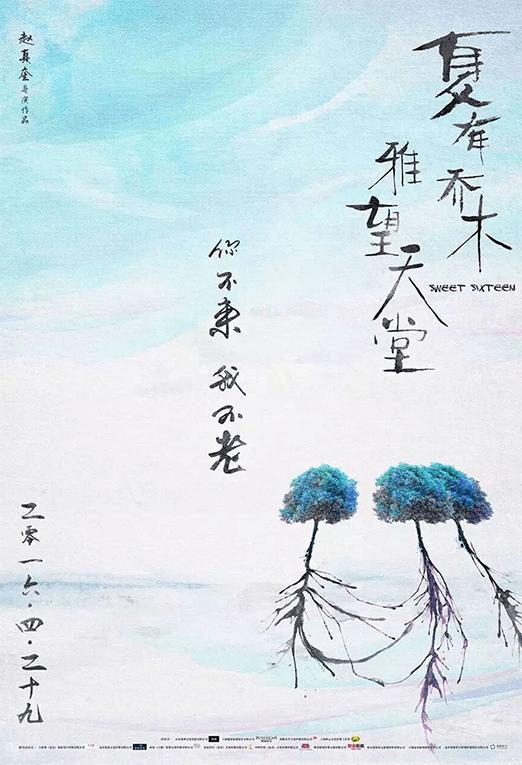 赵真奎导演作品
夏有乔木
雅望天堂
SWEET SIXTEEN
你不来 我不老
二零一六·四·二十九